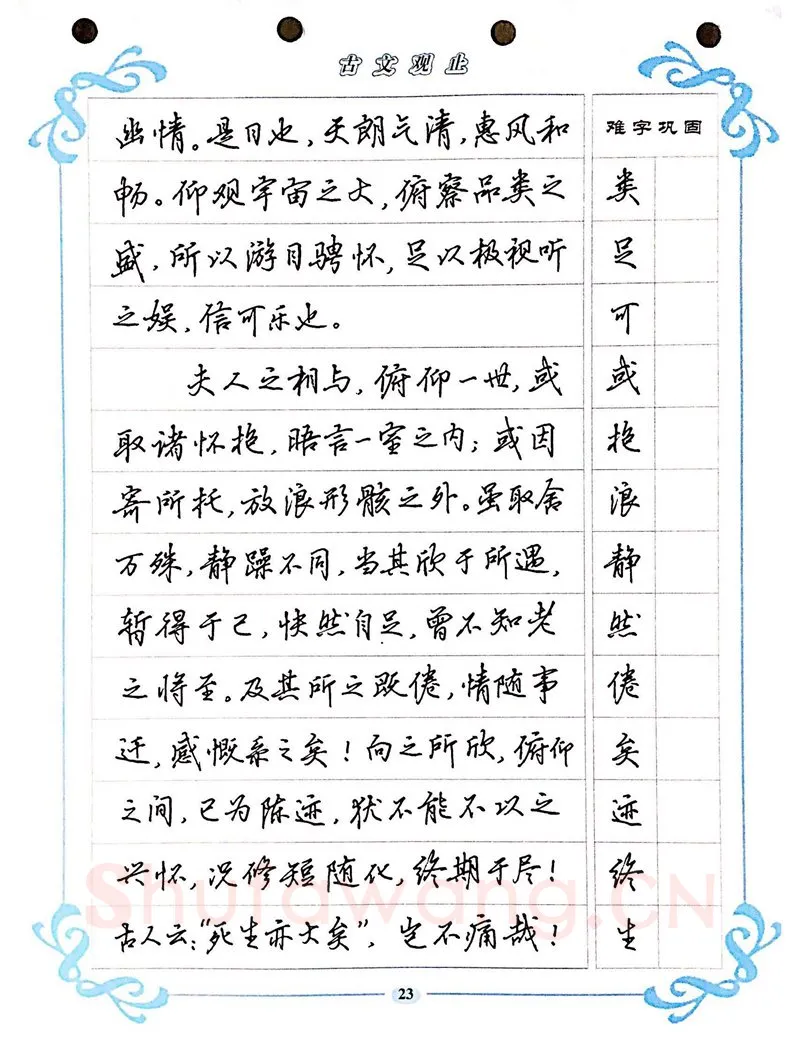 古文观止
幽情。是日也，天朗气清，惠风和
畅。仰观宇宙之大，俯察品类之
盛，所以游目骋怀，足以极视听
之娱，信可乐也。
夫人之相与，俯仰一世，或
取诸怀抱，晤言一室之内；或因
寄所托，放浪形骸之外。虽取舍
万殊，静躁不同，当其欣于所遇，
暂得于己，快然自足，曾不知老
之将至。及其所之既倦，情随事
迁，感慨系之矣！向之所欣，俯仰
之间，已为陈迹，犹不能不以之
兴怀，况修短随化，终期于尽！
古人云：“死生亦大矣”，岂不痛哉！
难字巩固
类
足
可
或
抱
浪
静
然
倦
矣
迹
终
生
Shufawang.CN
23